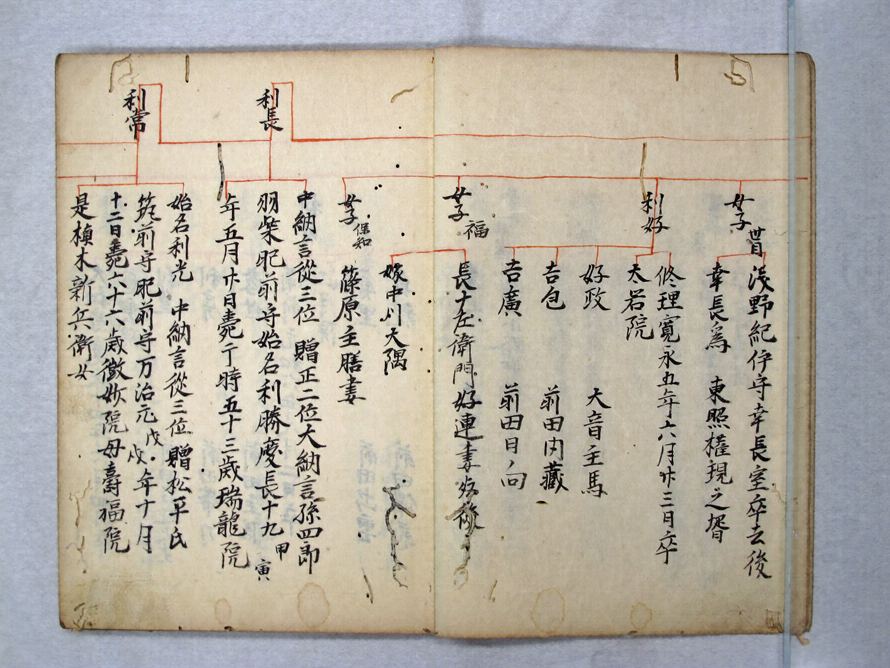 女子
浅野紀伊守幸長室卒去後
幸長為 東照権現之壻
利好
修理寛永五年六月廿三日卒
太岩院
好政 大音主馬
吉包 前田内蔵
吉廣 前田日向
女子 福
長十左衛門好連妻
嫁中川大隅
女子 保知 篠原主膳妻
利長
中納言従三位 贈正二位大納言孫四郎
羽柴肥前守始名利勝慶長十九甲寅
年五月廿日薨于時五十三歳瑞龍院
利常
始名利光 中納言従三位 贈松平氏
筑前守肥前守万治元戊戌年十月
十二日薨六十六歳微妙院母壽福院
是槙木新兵衛女